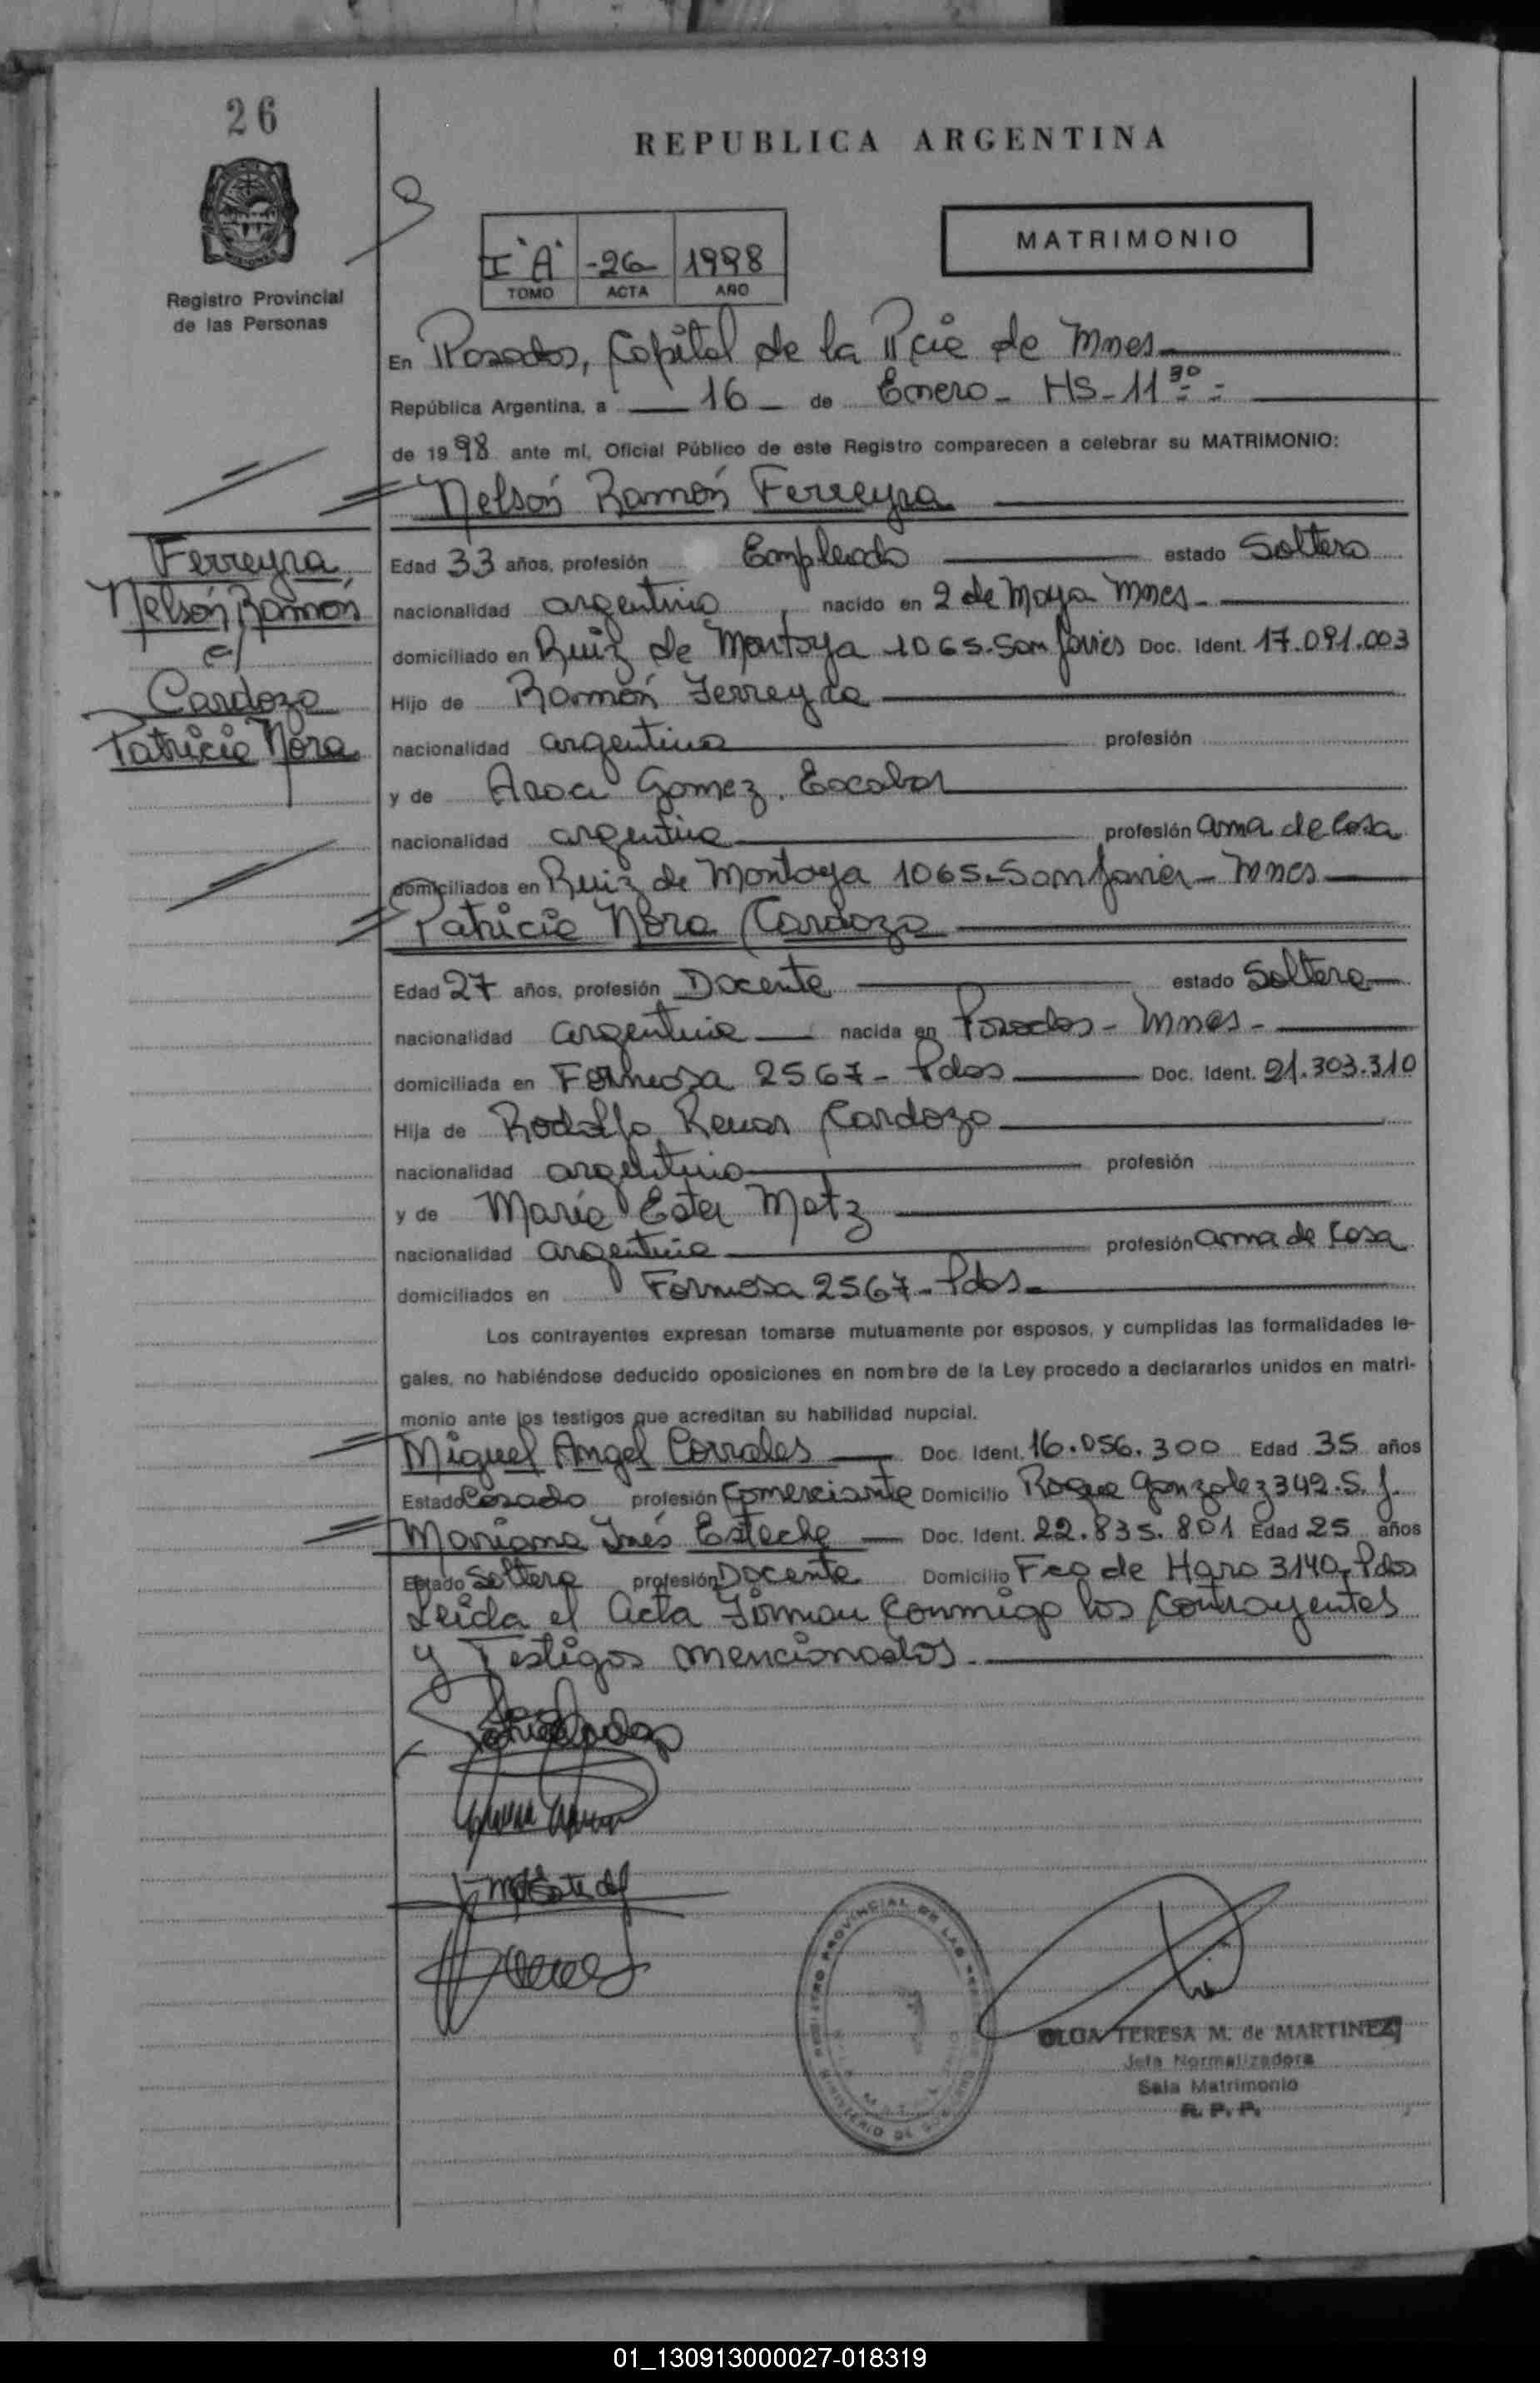 26
REPUBLICA ARGENTINA
MATRIMONIO
I "A" -26- 1998
TOMO ACTA AÑO
Registro Provincial
de las Personas
En Posadas, Capital de la Pcia de Mnes
República Argentina, a 16 - de Enero - HS - 11 30
de 1998 ante mí, Oficial Público de este Registro comparecen a celebrar su MATRIMONIO:
Nelson Ramón Ferreyra
Ferreyra
Nelson Ramón
c/
Cardozo
Patricia Nora
Edad 33 años, profesión Empleado estado Soltero
nacionalidad argentino, nacido en 2 de Mayo Mnes -
domiciliado en Ruiz de Montoya 1065 - San Javier Doc. Ident. 17.091.003
Hijo de Ramón Ferreyra
nacionalidad argentino profesión
y de Gomez Escobar
nacionalidad argentina profesión ama de casa
domiciliados en Ruiz de Montoya 1065 - San Javier - Mnes
Patricia Nora Cardozo
Edad 27 años, profesión Docente estado Soltera
nacionalidad argentina nacida en Posadas - Mnes -
domiciliada en Formosa 2567 - Pdas Doc. Ident. 21.303.310
Hija de Rodolfo Cardozo
nacionalidad argentino profesión
y de María Ester Metz
nacionalidad argentina profesión ama de casa
domiciliados en Formosa 2567 - Pdas -
Los contrayentes expresan tomarse mutuamente por esposos, y cumplidas las formalidades le-
gales, no habiéndose deducido oposiciones en nombre de la Ley procedo a declararlos unidos en matri-
monio ante los testigos que acreditan su habilidad nupcial.
Miguel Angel Corrales Doc. Ident. 16.056.300 Edad 35 años
Estado Casado profesión Comerciante Domicilio Roque Gonzalez 342 - S. J.
Mariana Inés Esteche Doc. Ident. 22.835.801 Edad 25 años
Estado Soltera profesión Docente Domicilio Fco de Haro 3140 - Pdas
Leída el Acta Firman conmigo los contrayentes
y Testigos mencionados -
REGISTRO PROVINCIAL DE LAS
MINISTERIO DE
OLGA TERESA M. de MARTINEZ
Jefa Normalizadora
Sala Matrimonio
R. P. P.
01_130913000027-018319